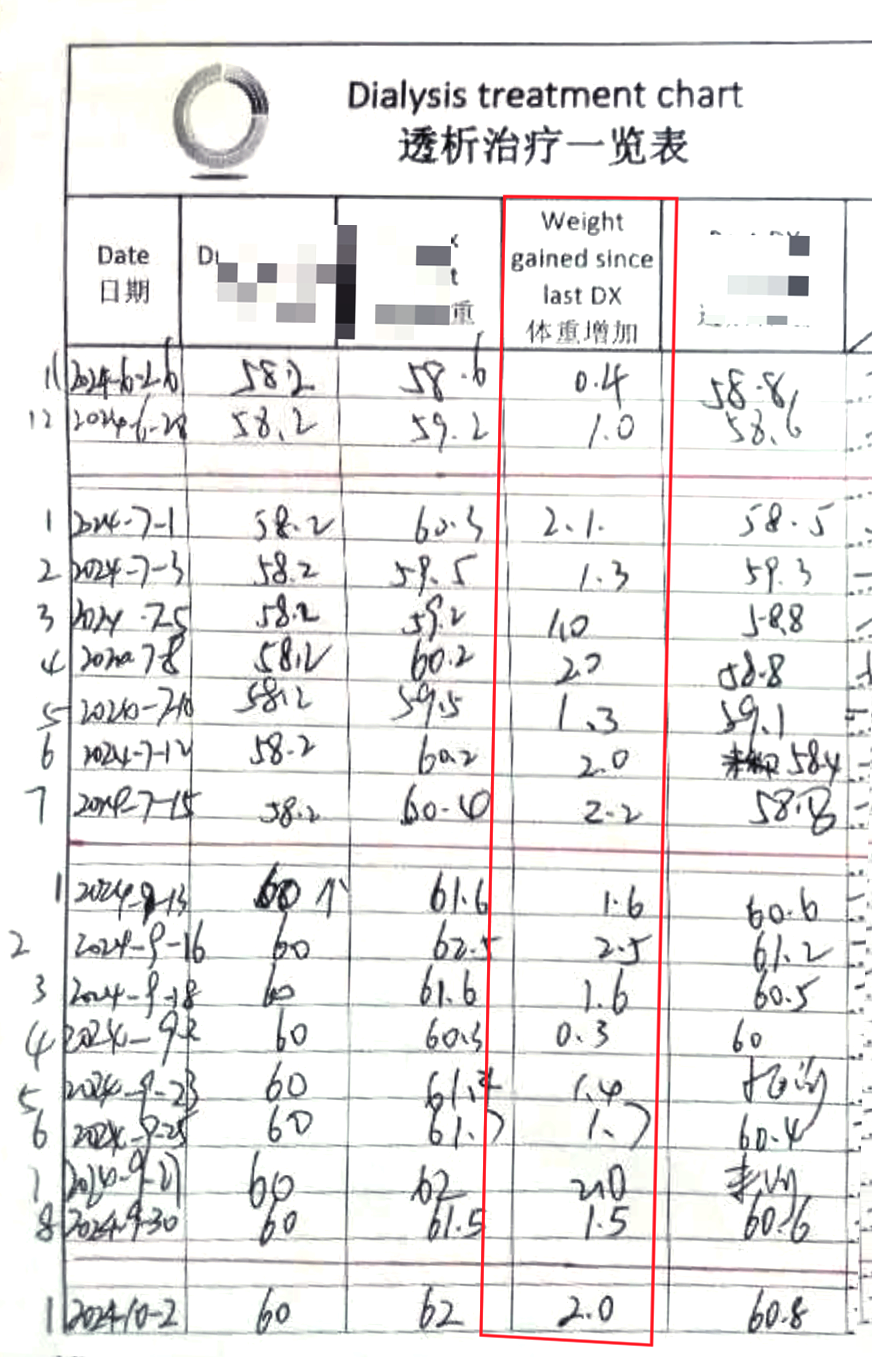 Dialysis treatment chart
透析治疗一览表
Date
日期
重
Weight
gained since
last DX
体重增加
11 2024-6-26 58.2 58.6 0.4 58.8
12 2024-6-28 58.2 59.2 1.0 58.6
1 2024-7-1 58.2 60.3 2.1. 58.5
2 2024-7-3 58.2 59.5 1.3 59.3
3 2024.7-5 58.2 59.2 1.0 58.8
4 7-8 58.2 60.2 2.0 58.8
5 58.2 59.5 1.3 59.1
6 2024-7-12 58.2 60.2 2.0 58.4
7 2024-7-15 58.2 60.4 2.2 58.8
1 2024-9-13 60 个 61.6 1.6 60.6
2 2024-9-16 60 62.5 2.5 61.2
3 2024-9-18 60 61.6 1.6 60.5
4 60 60.3 0.3 60
5 2024-9-23 60 1.4
6 2024-9-25 60 61.7 1.7 60.4
7 60 62 2.0
8 2024-9-30 60 61.5 1.5 60.6
1 2024-10-2 60 62 2.0 60.8